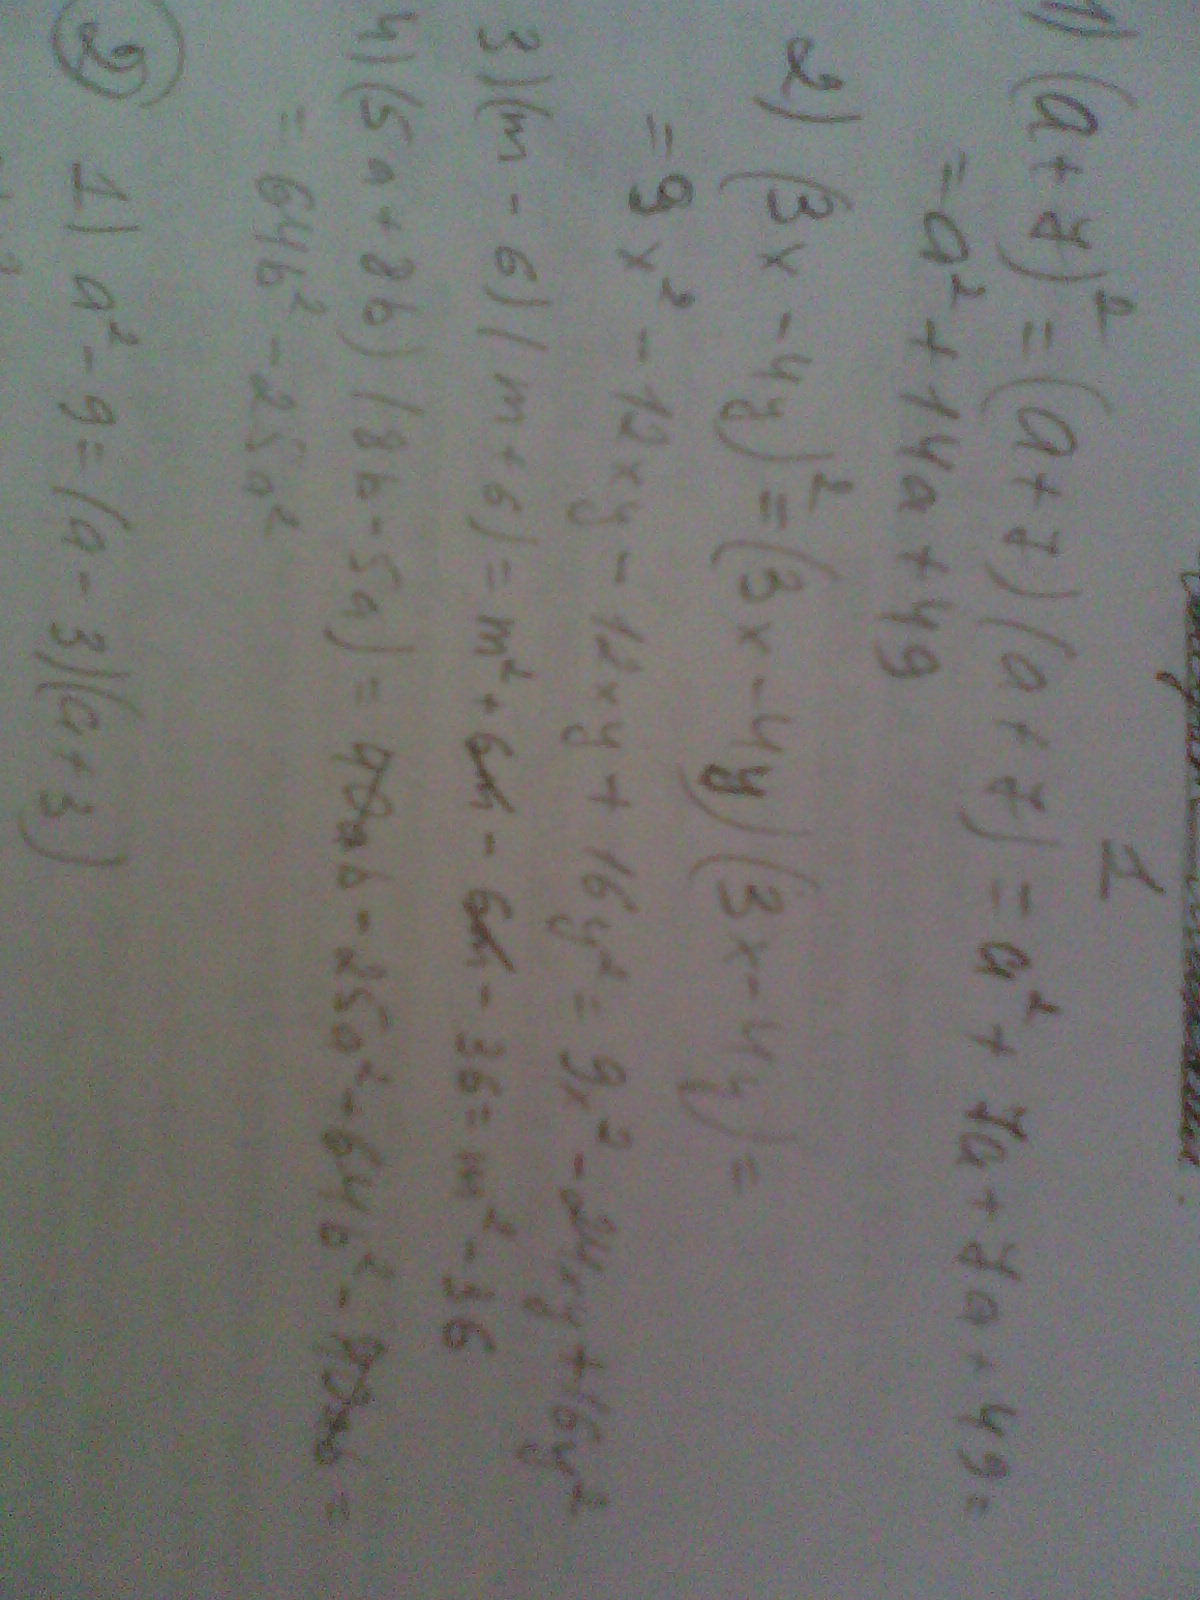 1
1) (a+7)² = (a+7)(a+7) = a² + 7a + 7a + 49 =
= a² + 14a + 49
2) (3x - 4y)² = (3x - 4y)(3x - 4y) =
= 9x² - 12xy - 12xy + 16y² = 9x² - 24xy + 16y²
3) (m - 6)(m + 6) = m² + 6m - 6m - 36 = m² - 36
4) (5a + 8b)(8b - 5a) = 40ab - 25a² - 64b² - 40ab =
= 64b² - 25a²
2 1) a² - 9 = (a - 3)(a + 3)